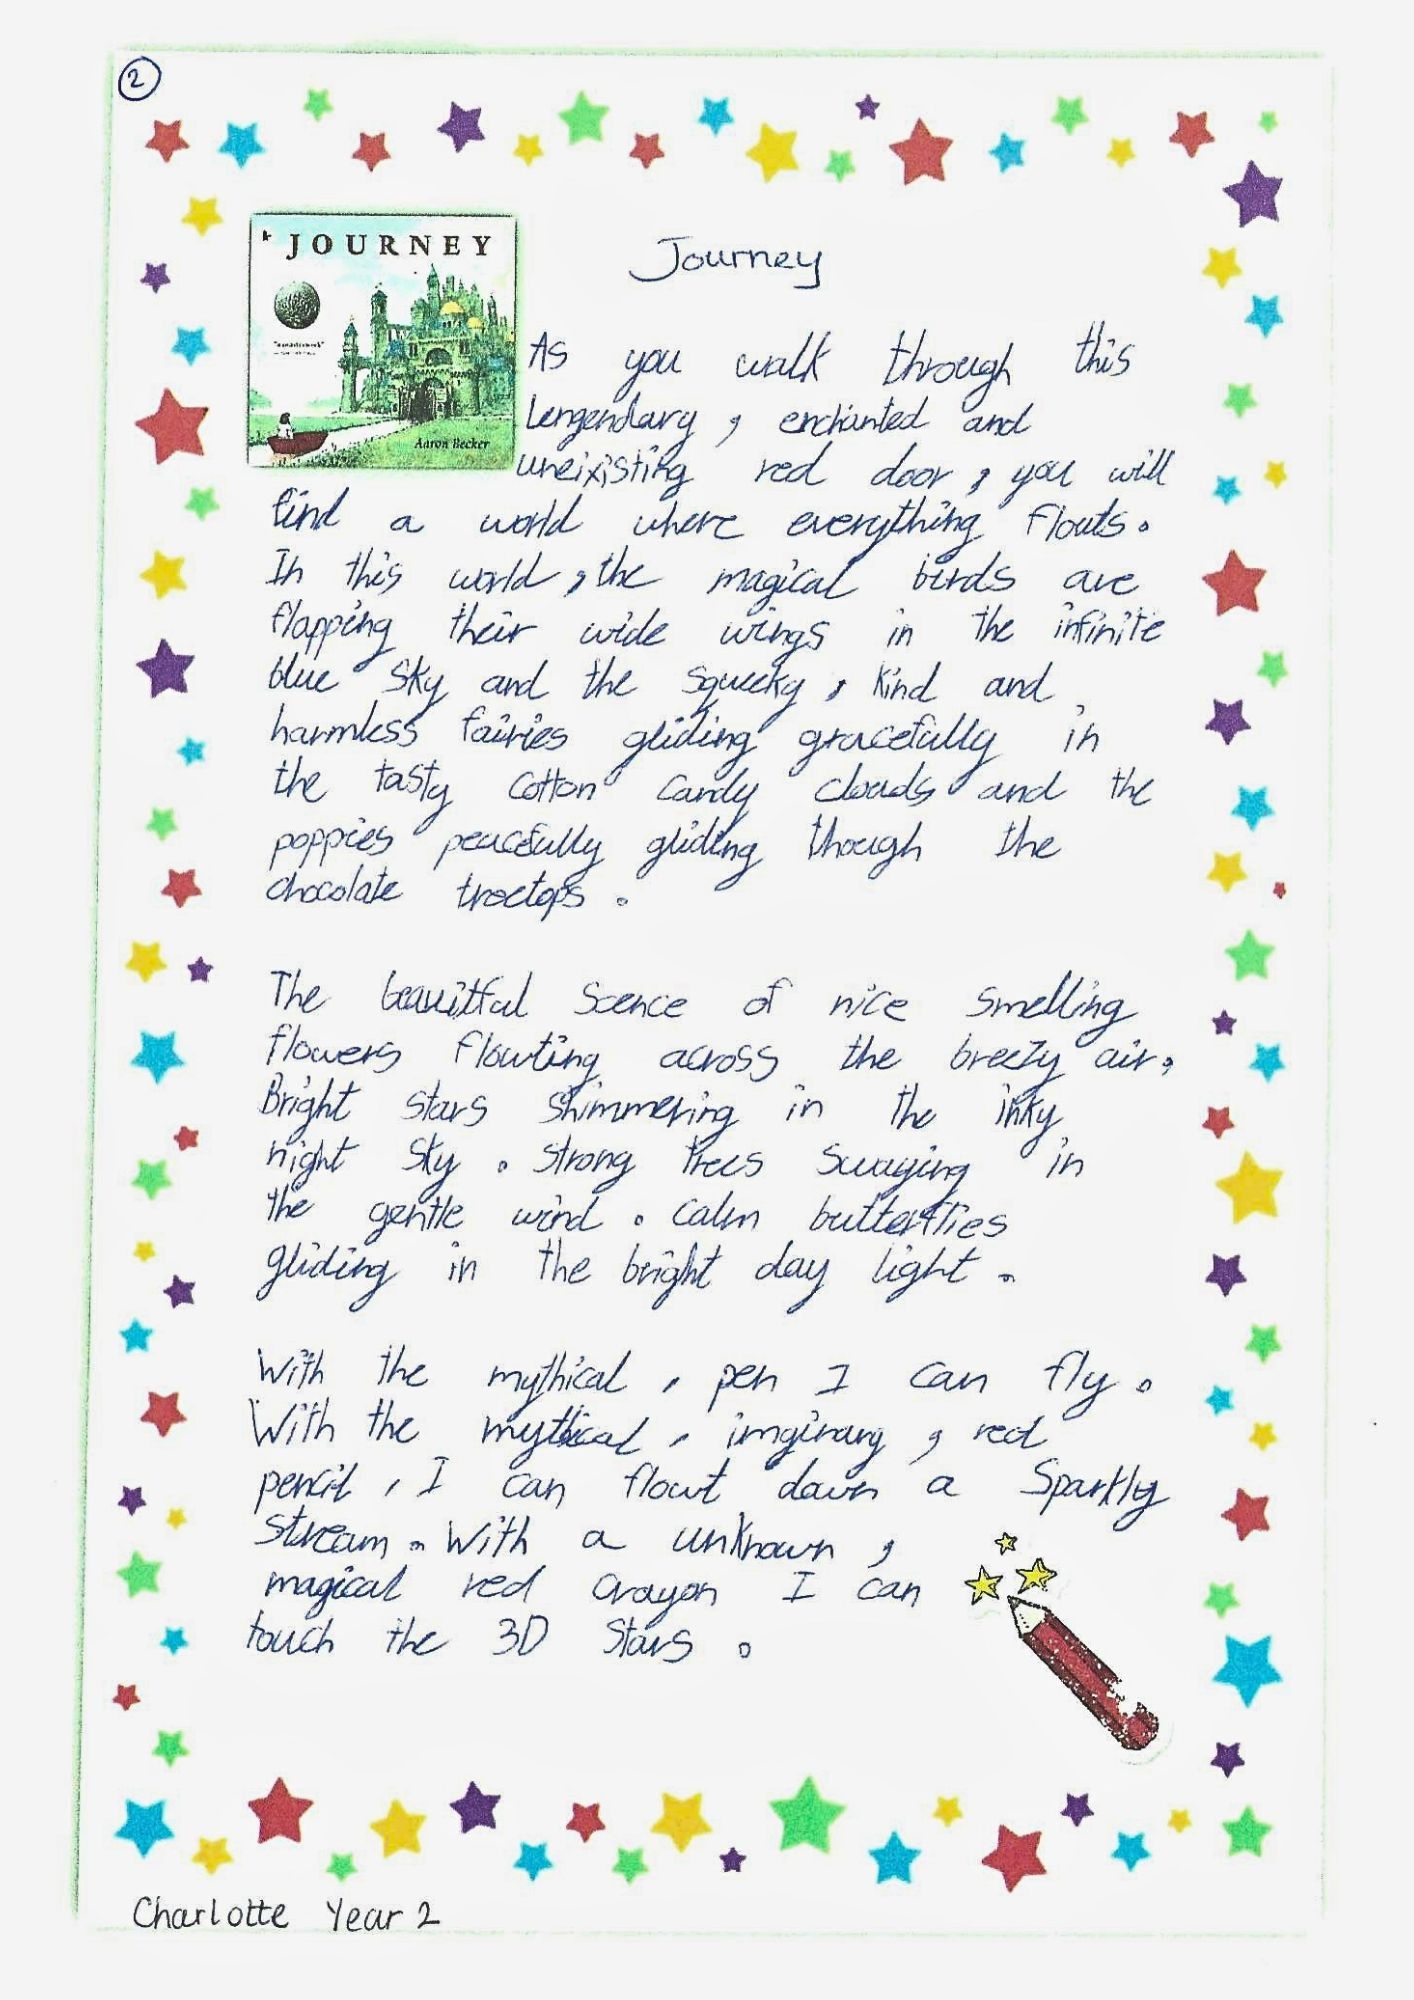 2
JOURNEY
Aaron Becker
Journey
As you walk through this
Lengendary, enchanted and
uneixisting red door, you will
find a world where everything flouts.
In this world, the magical birds are
flapping their wide wings in the infinite
blue sky and the squeeky, kind and
harmless fairies gliding gracefully in
the tasty cotton candy clouds and the
poppies peacefully gliding though the
chocolate treetops.
The beauitful scence of nice smelling
flowers flowting across the breezy air,
Bright stars shimmering in the inky
night sky. strong trees swaying in
the gentle wind. calm butterflies
gliding in the bright day light.
With the mythical, pen I can fly.
With the mythical, imginary, red
pencil, I can flowt down a Sparkly
stream. With a unknown,
magical red crayon I can
touch the 3D stars.
Charlotte Year 2